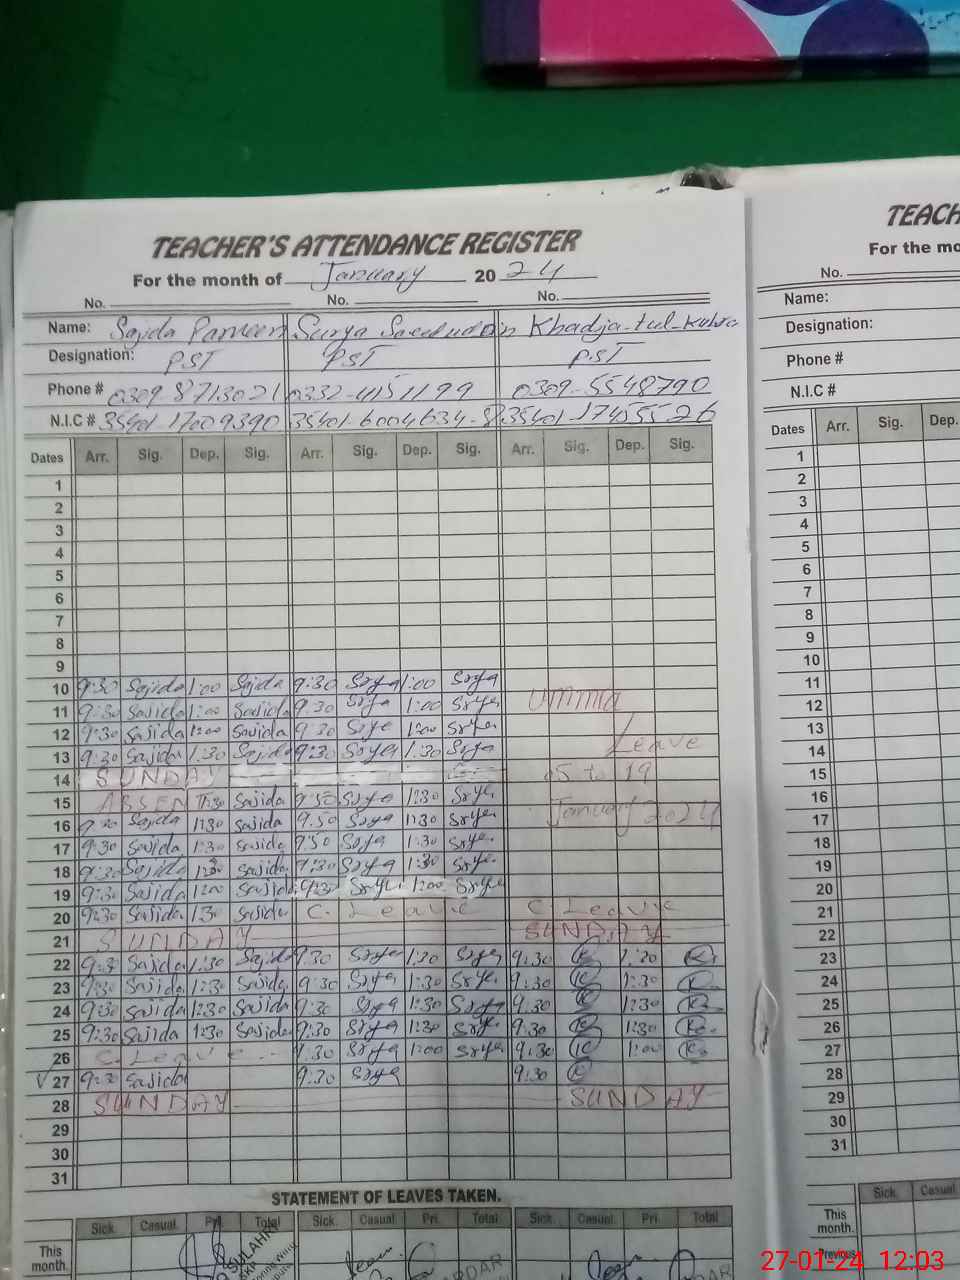 TEACHER'S ATTENDANCE REGISTER
For the month of January 2024
No. No. No.
Name: Sajida Parveen Surya Saeeduddin Khadja-tul-Kubra
Designation: PST PST PST
Phone # 0309 8713021 0332-4151199 0309-5548790
N.I.C #
Dates Arr. Sig. Dep. Sig. Arr. Sig. Dep. Sig. Arr. Sig. Dep. Sig.
1
2
3
4
5
6
7
8
9
10 9:30 Sajida 1:00 Sajida 9:30 Srya 1:00 Srya
11 9:30 Sajida 1:00 Sajida 9:30 Srya 1:00 Srya Ummra
12 9:30 Sajida 1:00 Sajida 9:30 Srya 1:00 Srya
13 9:30 Sajida 1:30 Sajida 9:30 Srya 1:30 Srya Leave
14 SUNDAY 05 to 19
15 ABSEN 1:30 Sajida 9:50 Srya 1:30 Srya
16 9:30 Sajida 1:30 Sajida 9:50 Srya 1:30 Srya January 2024
17 9:30 Sajida 1:30 Sajida 9:50 Srya 1:30 Srya
18 9:30 Sajida 1:30 Sajida 9:30 Srya 1:30 Srya
19 9:30 Sajida 1:00 Sajida 9:30 Srya 1:00 Srya
20 9:30 Sajida 1:30 Sajida C. Leave C. Leave
21 SUNDAY SUNDAY
22 9:30 Sajida 1:30 Sajida 9:30 Srya 1:30 Srya 9:30 K 1:30 K
23 9:30 Sajida 1:30 Sajida 9:30 Srya 1:30 Srya 9:30 K 1:30 K
24 9:30 Sajida 1:30 Sajida 9:30 Srya 1:30 Srya 9:30 K 1:30 K
25 9:30 Sajida 1:30 Sajida 9:30 Srya 1:30 Srya 9:30 K 1:30 K
26 C. Leave 9:30 Srya 1:00 Srya 9:30 K 1:00 K
27 9:30 Sajida 9:30 Srya 9:30 K
28 SUNDAY SUNDAY
29
30
31
STATEMENT OF LEAVES TAKEN.
Sick. Casual. Pri. Total Sick. Casual. Pri. Total Sick. Casual. Pri. Total
This month.
TEACH
For the mo
No.
Name:
Designation:
Phone #
N.I.C #
Dates Arr. Sig. Dep.
1
2
3
4
5
6
7
8
9
10
11
12
13
14
15
16
17
18
19
20
21
22
23
24
25
26
27
28
29
30
31
Sick. Casual
This month.
Previous
27-01-24 12:03